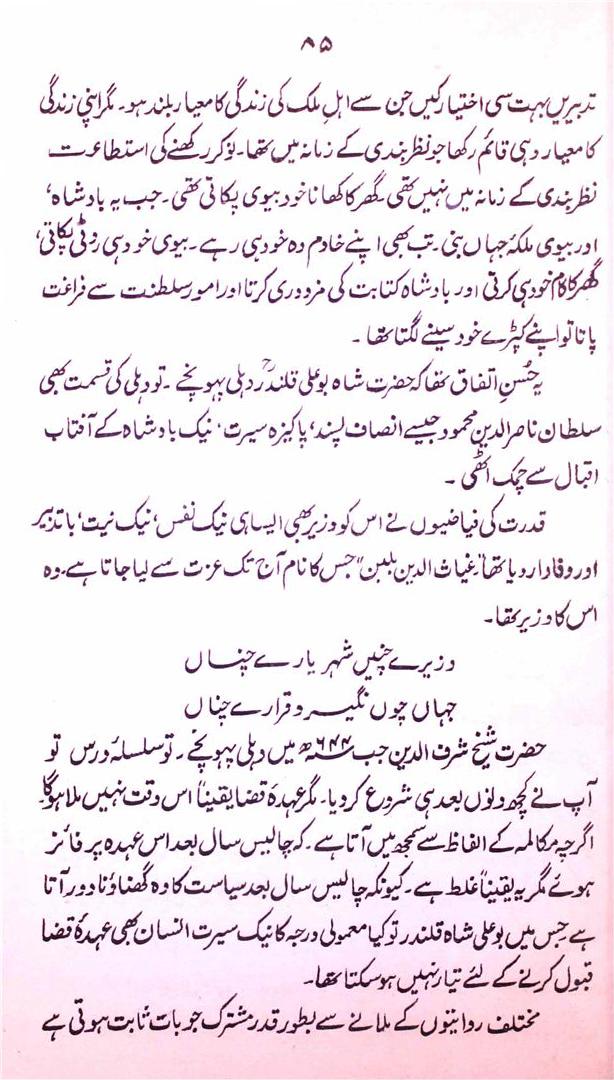 ۸۵
تدبیریں بہت سی اختیار کیں جن سے اہلِ ملک کی زندگی کا معیار بلند ہو۔ مگر اپنی زندگی
کا معیار وہی قائم رکھا جو نظر بندی کے زمانہ میں تھا۔ نوکر رکھنے کی استطاعت
نظر بندی کے زمانہ میں نہیں تھی۔ گھر کا کھانا خود بیوی پکاتی تھی۔ جب یہ بادشاہ،
اور بیوی ملکۂ جہاں بنی۔ تب بھی اپنے خادم وہ خود ہی رہے۔ بیوی خود ہی روٹی پکاتی،
گھر کا کام خود ہی کرتی اور بادشاہ کتابت کی مزدوری کرتا اور امور سلطنت سے فراغت
پاتا تو اپنے کپڑے خود سینے لگتا تھا۔
یہ حُسنِ اتفاق تھا کہ حضرت شاہ بوعلی قلندرؒ دہلی پہونچے۔ تو دہلی کی قسمت بھی
سلطان ناصر الدین محمود جیسے انصاف پسند، پاکیزہ سیرت، نیک بادشاہ کے آفتاب
اقبال سے چمک اٹھی۔
قدرت کی فیاضیوں نے اس کو وزیر بھی ایسا ہی نیک نفس، نیک نیت، با تدبیر
اور وفادار دیا تھا، "غیاث الدین بلبن" جس کا نام آج تک عزت سے لیا جاتا ہے۔ وہ
اس کا وزیر تھا۔
وزیرے چنیں شہر یارے چناں
جہاں چوں نگیرو قرارے چناں
حضرت شیخ شرف الدین جب ۶۴۴ھ میں دہلی پہونچے۔ تو سلسلۂ درس تو
آپ نے کچھ دنوں بعد ہی شروع کر دیا۔ مگر عہدۂ قضا یقیناً اس وقت نہیں ملا ہوگا۔
اگرچہ مکالمہ کے الفاظ سے سمجھ میں آتا ہے۔ کہ چالیس سال بعد اس عہدہ پر فائز
ہوئے مگر یہ یقیناً غلط ہے۔ کیونکہ چالیس سال بعد سیاست کا وہ گھناؤنا دور آتا
ہے جس میں بوعلی شاہ قلندر تو کیا معمولی درجہ کا نیک سیرت انسان بھی عہدۂ قضا
قبول کرنے کے لئے تیار نہیں ہو سکتا تھا۔
مختلف روایتوں کے ملانے سے بطور قدر مشترک جو بات ثابت ہوتی ہے